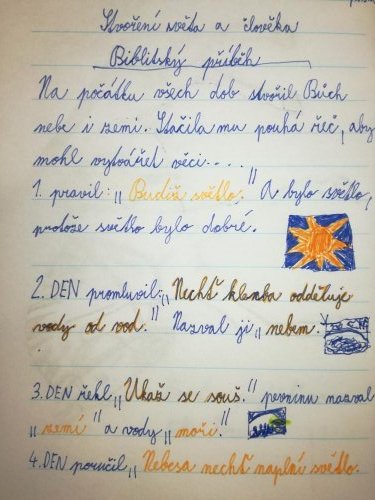 Stvoření světa a člověka
Biblitský příběh
Na počátku všech dob stvořil Bůch
nebe i zemi. Stačila mu pouhá řeč, aby
mohl vytvářet věci....
1. pravil: „Budiž světlo." A bylo světlo,
protože světlo bylo dobré.
2. DEN promluvil: „Nechť klenba odděluje
vody od vod." Nazval ji „nebem."
3. DEN řekl „Ukaž se souš." pevninu nazval
„zemí" a vody „moři."
4. DEN poručil „Nebesa nechť naplní světlo.